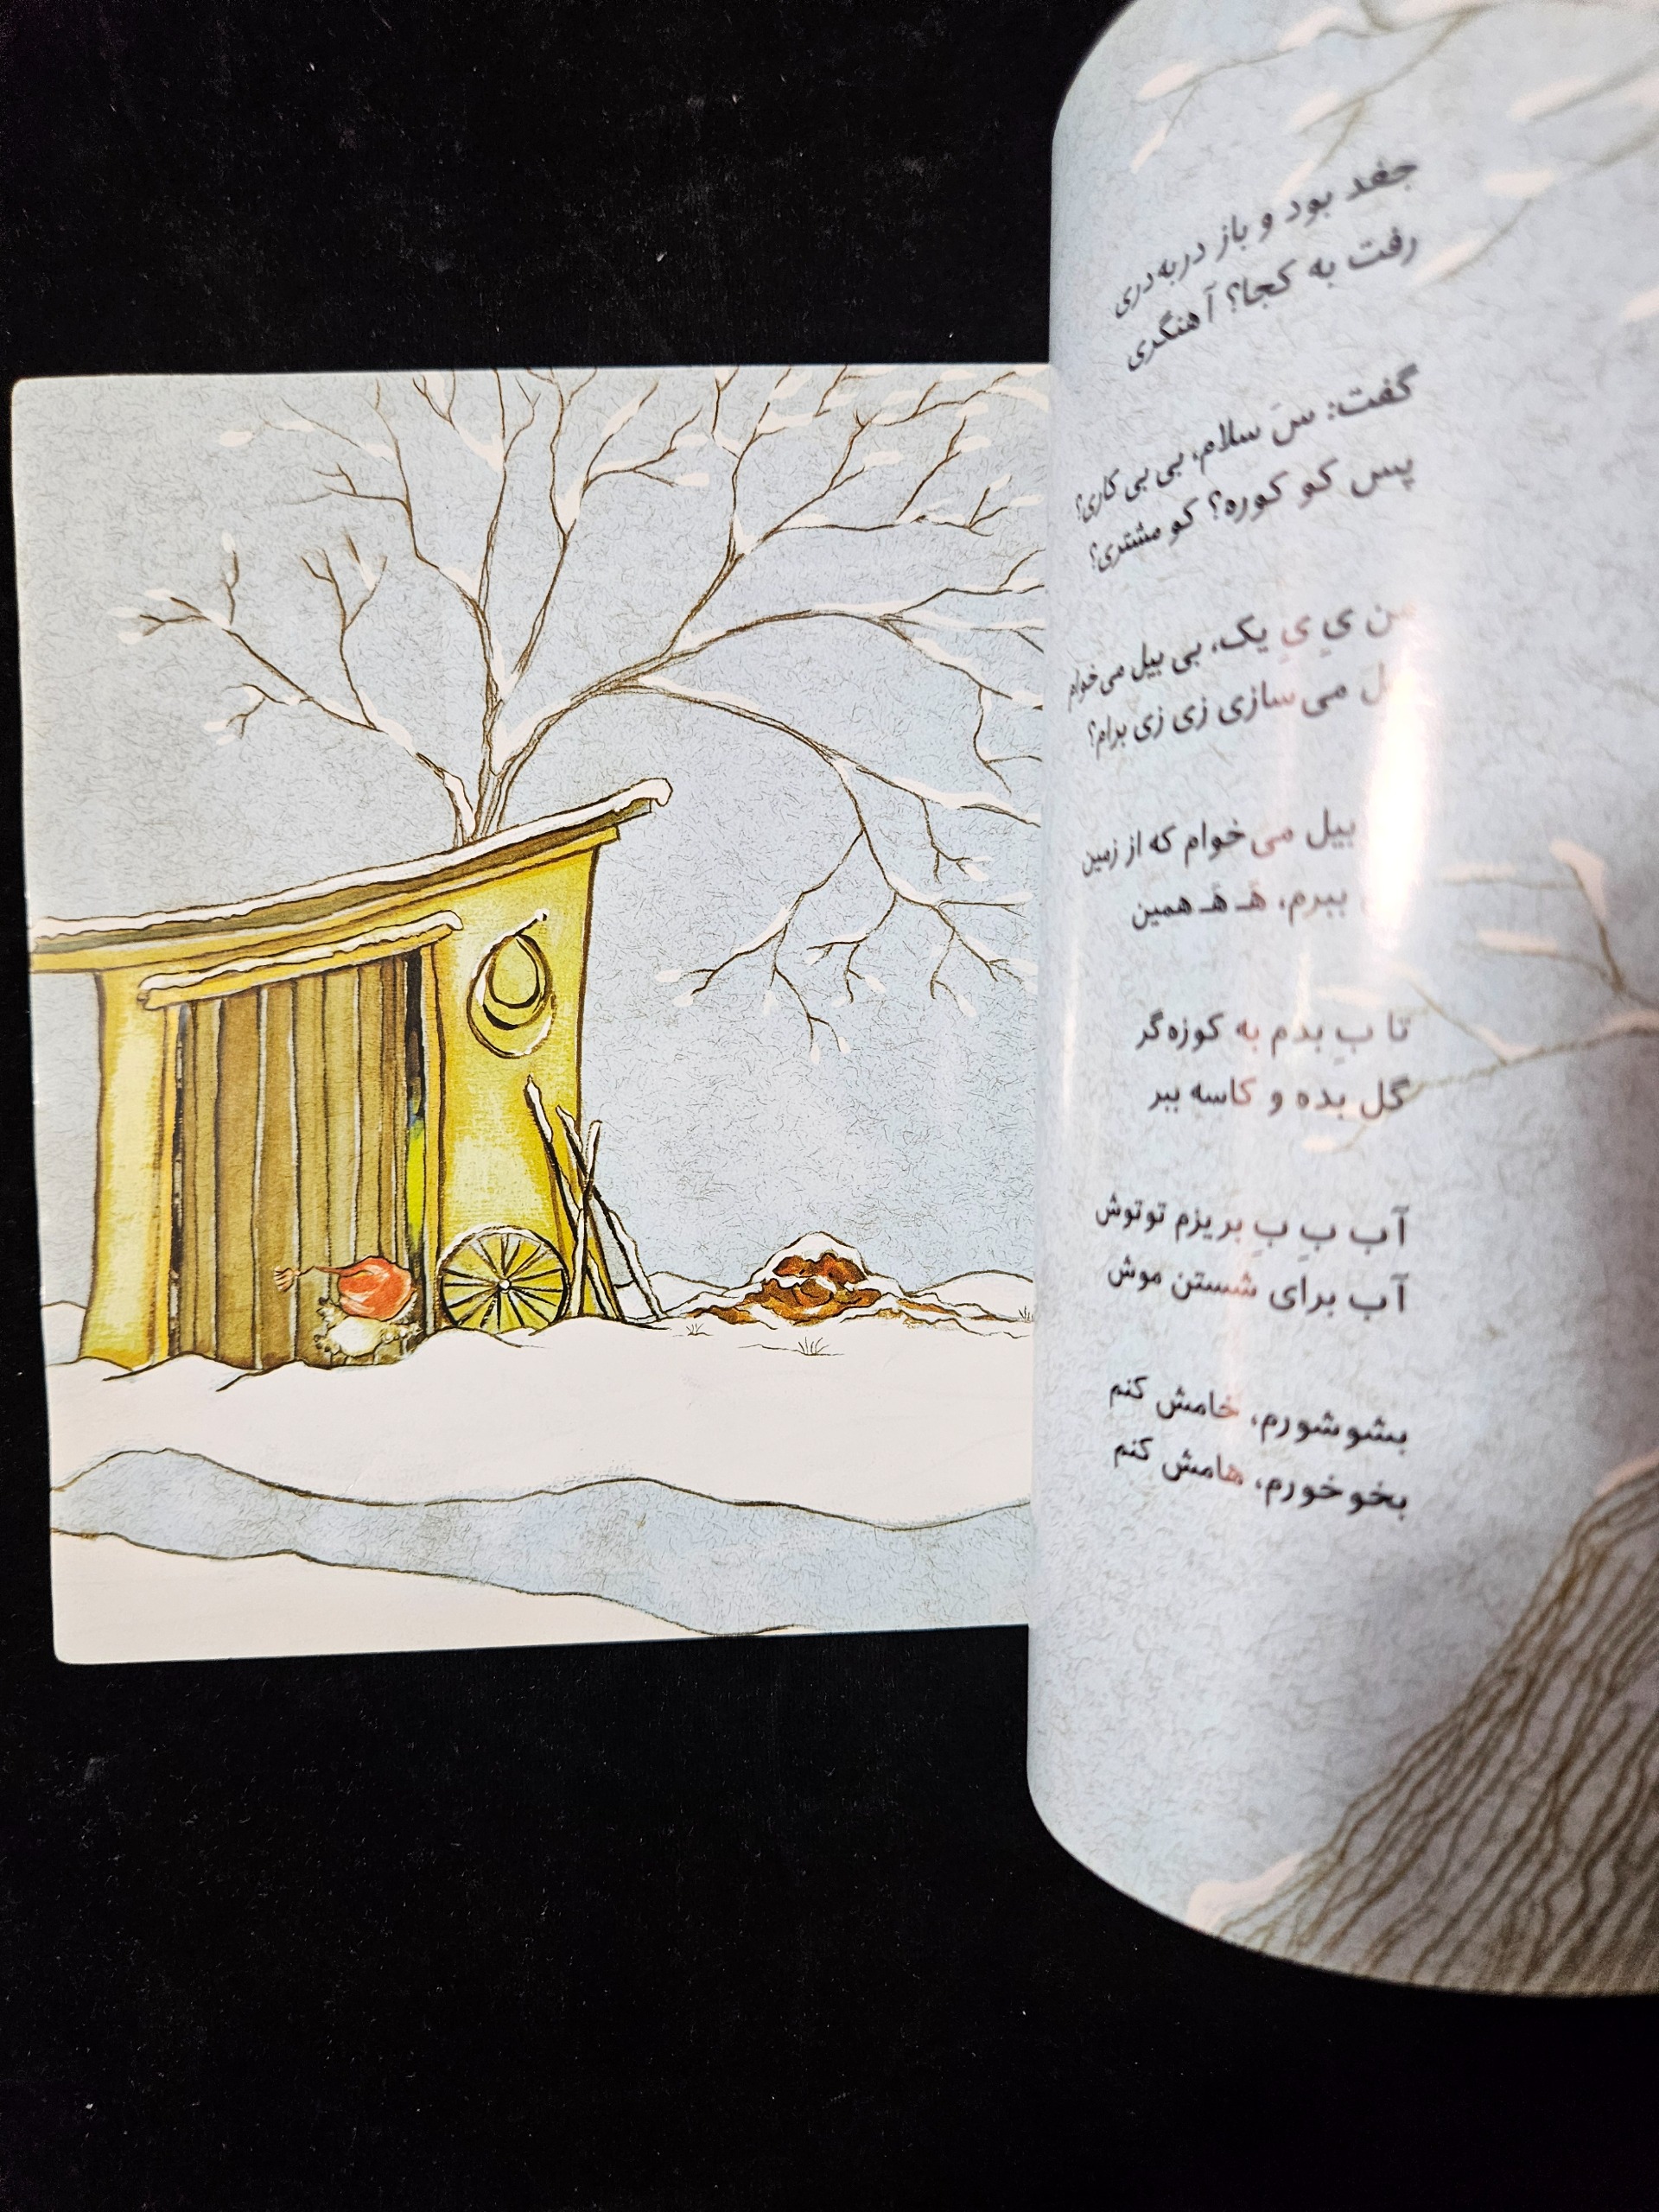 جغد بود و باز دربه‌دری
رفت به کجا؟ آهنگری
گفت: سَ سلام، بی بی کاری؟
پس کو کوره؟ کو مشتری؟
من یِ یِ یک، بی بیل می‌خوام
می‌سازی زی زی برام؟
بیل می‌خوام که از زمین
ببرم، هَـ هَـ همین
تا بِ بدم به کوزه‌گر
گل بده و کاسه ببر
آب بِ بِ بریزم توتوش
آب برای شستن موش
بشوشورم، خامش کنم
بخوخورم، هامش کنم